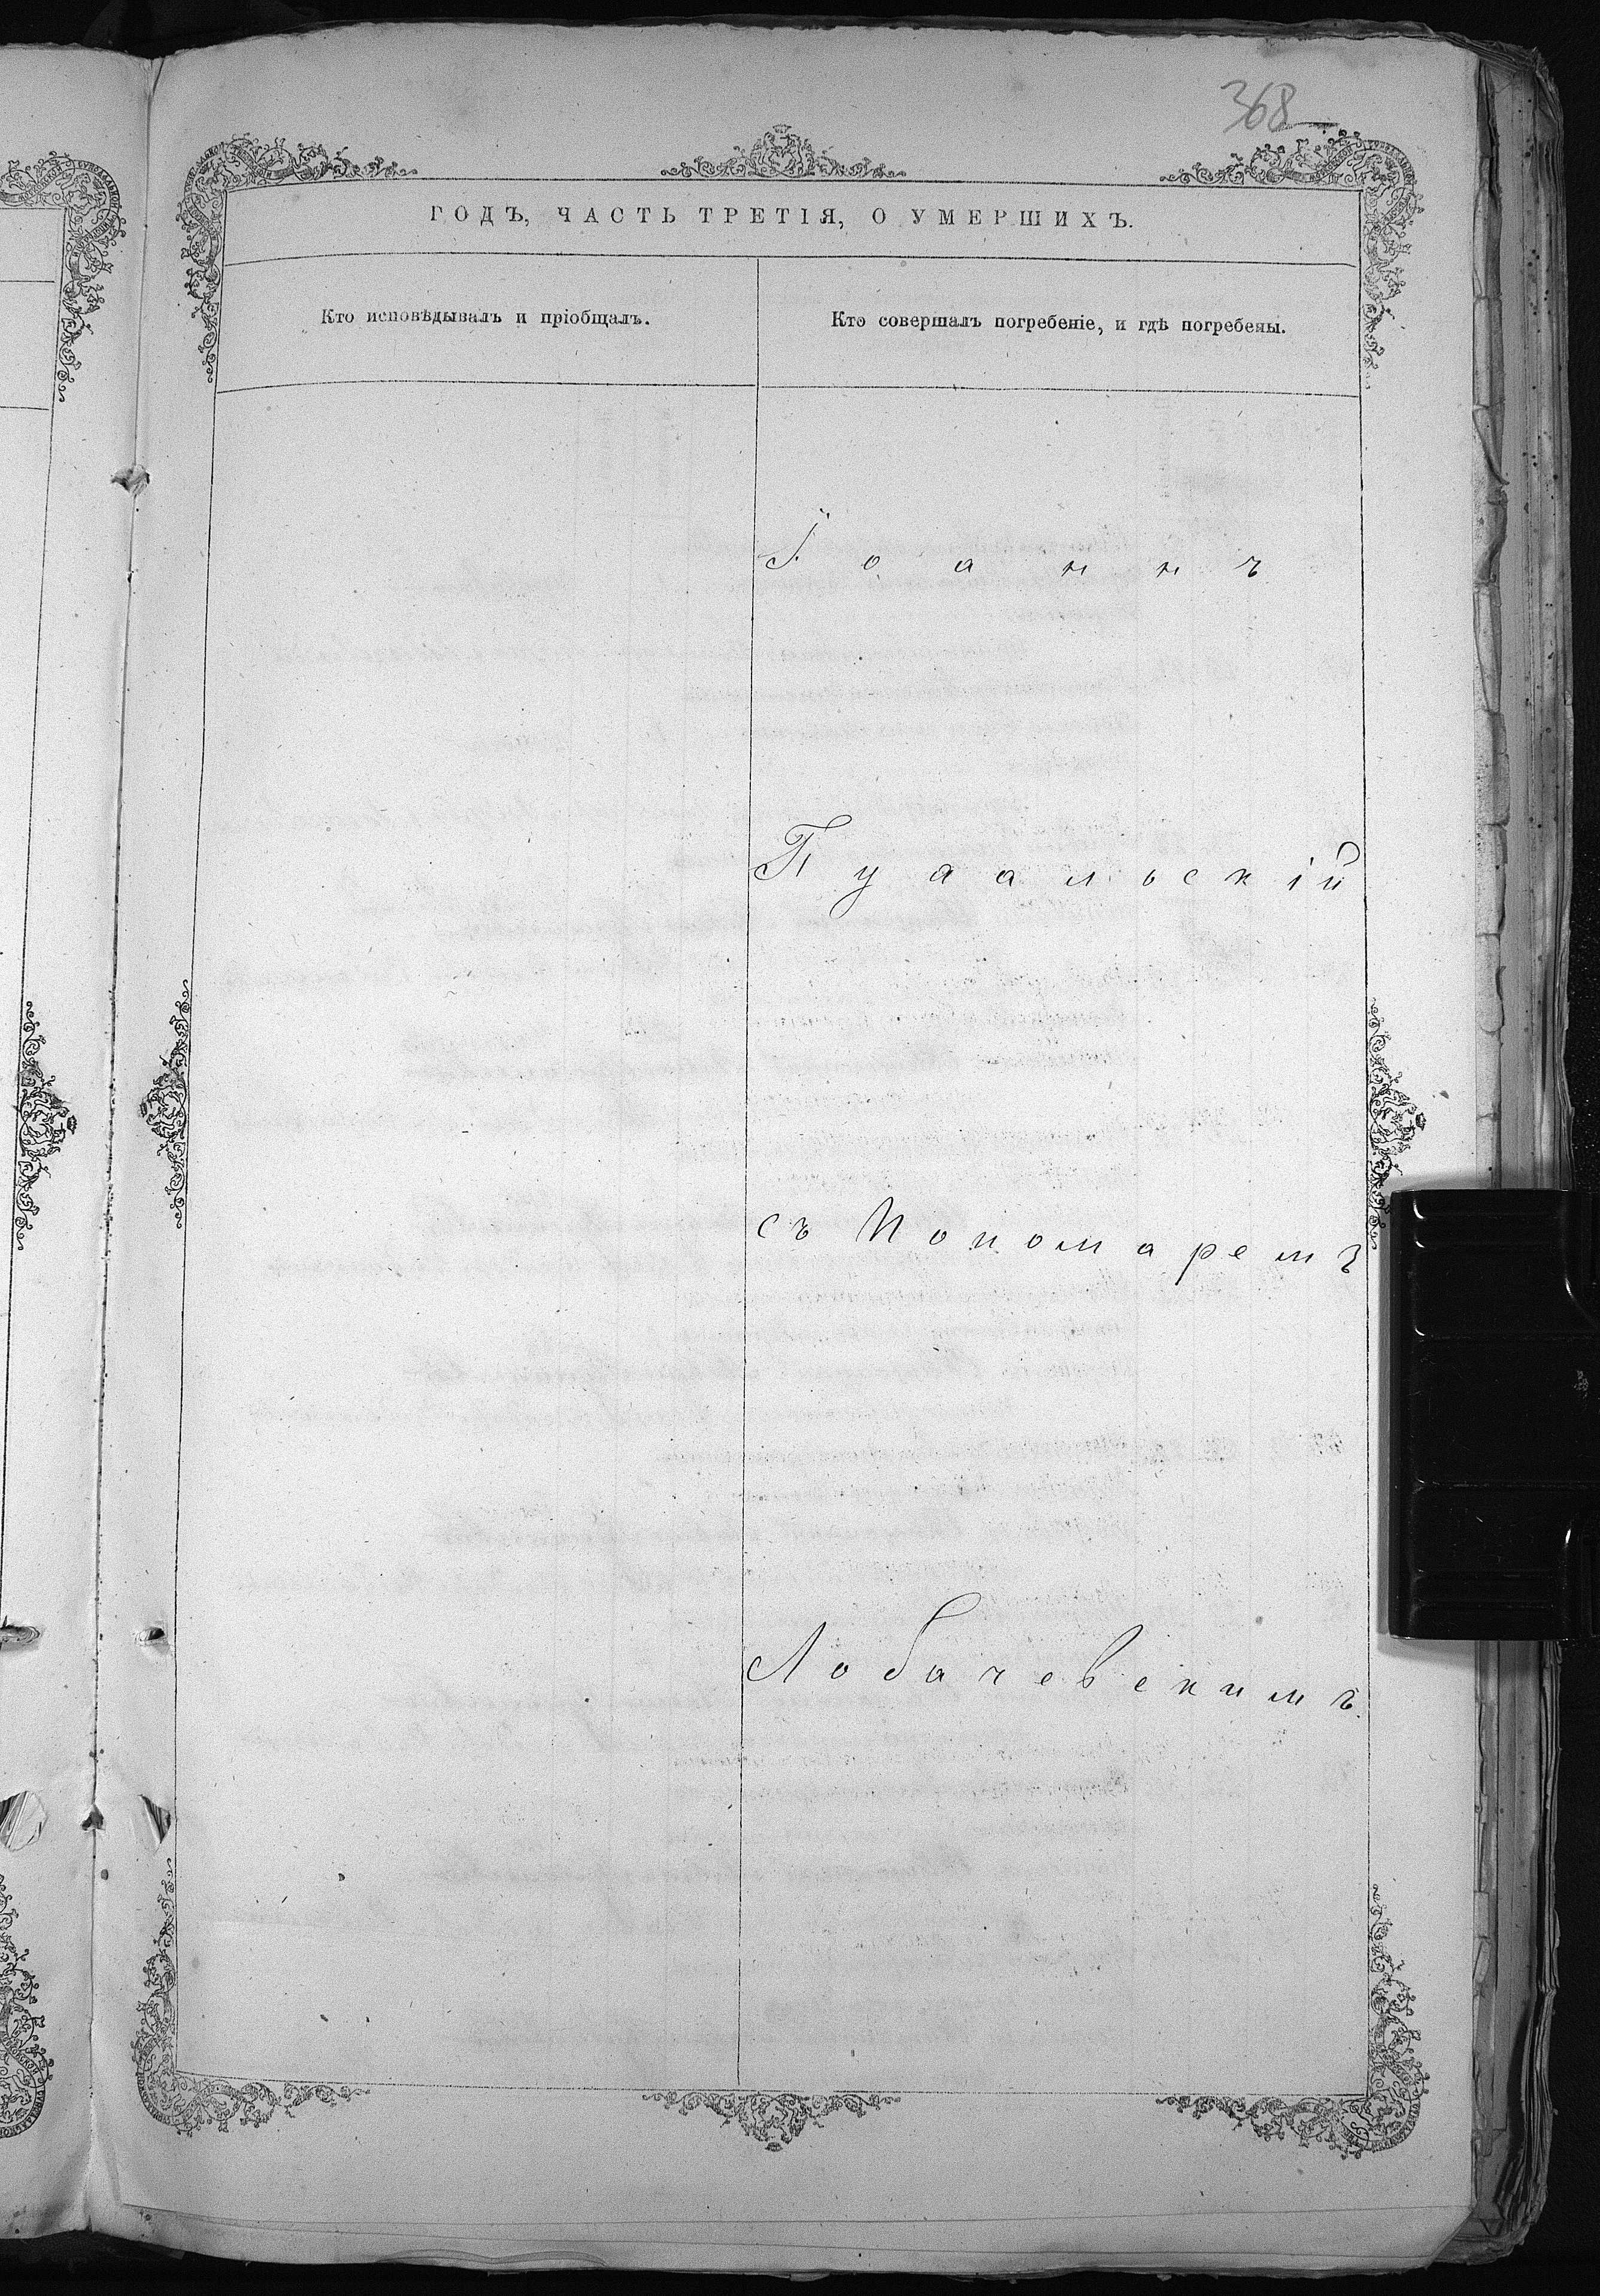 368
ГОДЪ, ЧАСТЬ ТРЕТІЯ, О УМЕРШИХЪ.
Кто исповѣдывалъ и пріобщалъ.
Кто совершалъ погребеніе, и гдѣ погребены.
Іоаннъ
съ Пономаремъ
Лобачевскимъ.